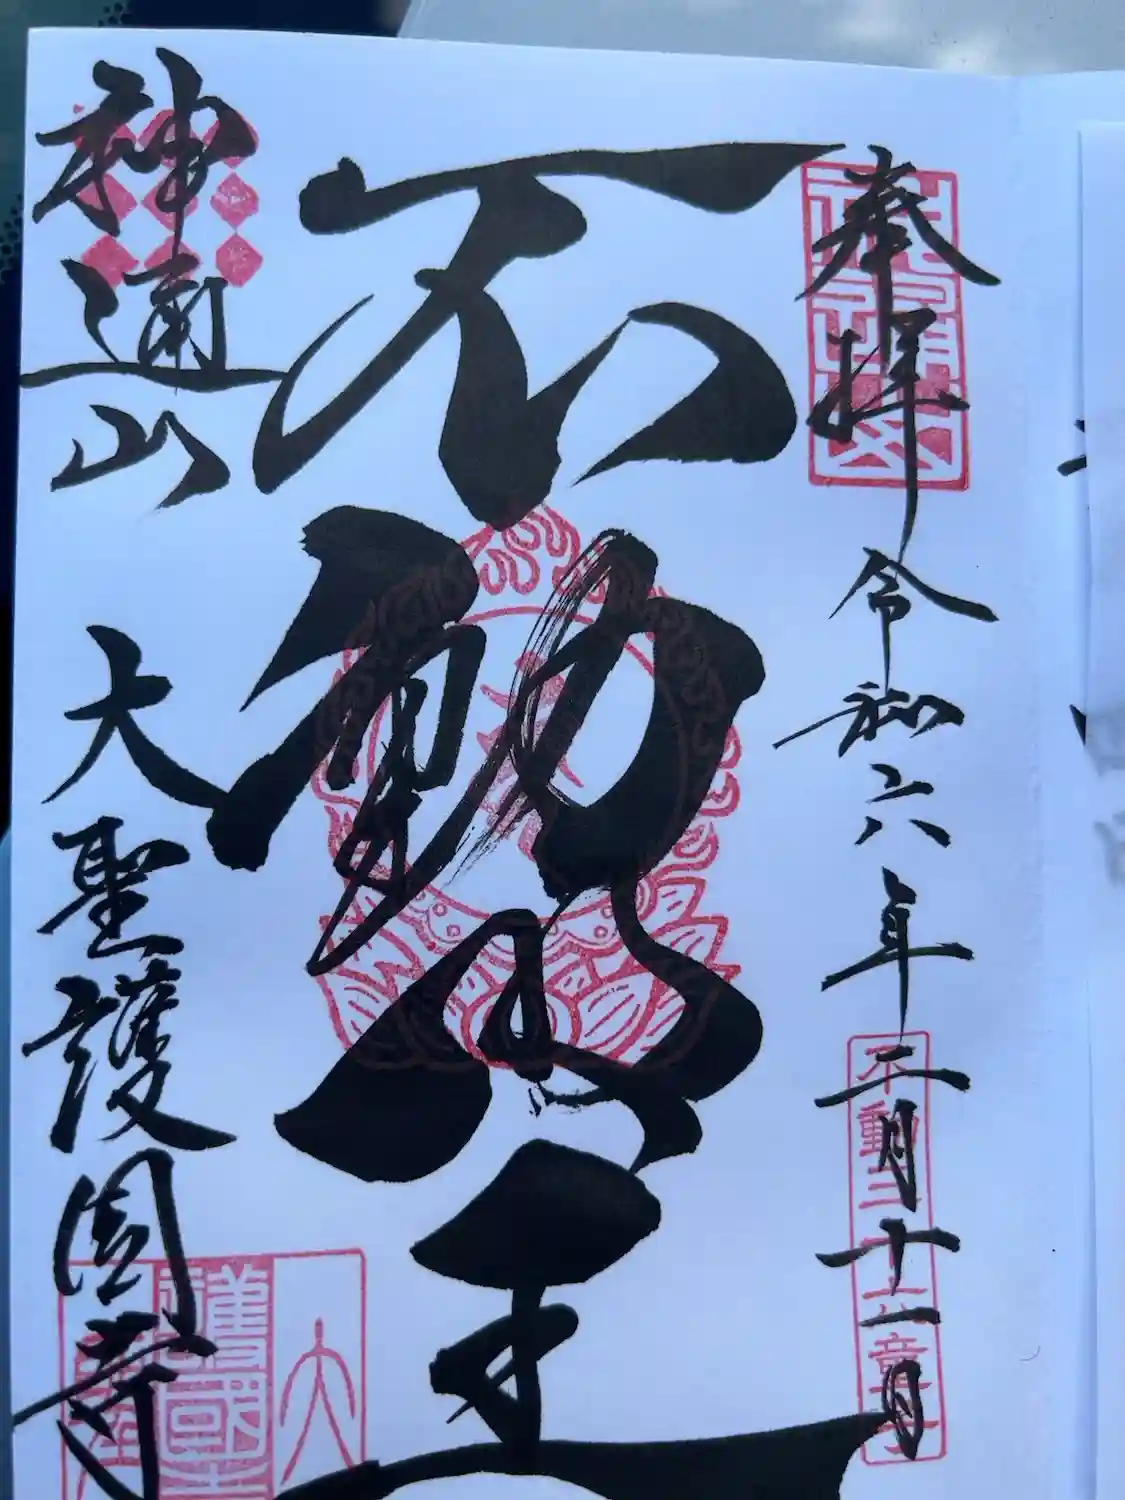 奉拝
令和六年二月十一日
不動明王
神通山
大聖護国寺
不動三十六童子